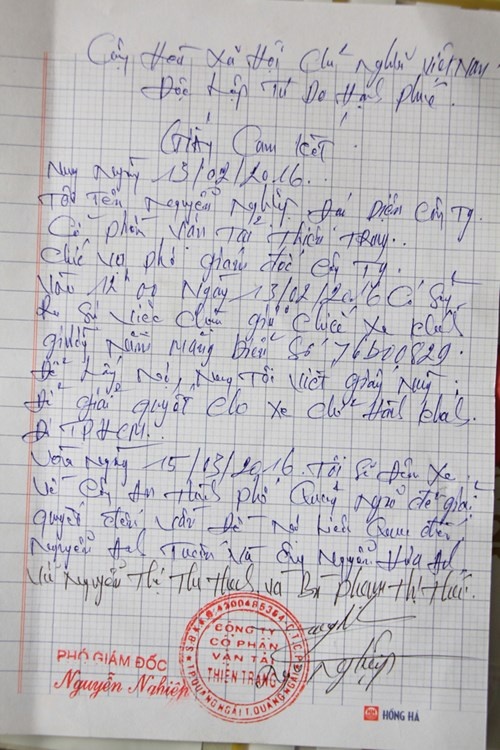 Cộng Hoà Xã Hội Chủ Nghĩa Việt Nam
Độc Lập Tự Do Hạnh phúc.
Giấy Cam Kết.
Nay Ngày 13/02/2016.
Tôi Tên Nguyễn Nghiệp. Đại Diện Công Ty.
Cổ phần Vận Tải Thiên Trang.
Chức vụ phó giám đốc Công Ty.
Vào 12h00 Ngày 13/02/2016 Có
Sự Việc giữ chiếc Xe khách
giường Nằm Mang Biển Số 76B00829.
Nay Tôi Viết giấy Này.
Để giải quyết Cho Xe chở Hành khách
Đi TPHCM.
Vào Ngày 15/03/2016 Tôi Sẽ Đến
Về Công An Thành phố Quảng Ngãi để giải
quyết đến Vấn Đề Nợ Liên Quan đến
Nguyễn Anh Tuấn Và Ông Nguyễn Hòa
Nguyễn Thị Thu và Bà phạm Thị
S.Đ.K.K.D:4300485364-C.T.C.P
CÔNG TY
CỔ PHẦN
VẬN TẢI
THIÊN TRANG
TP.QUẢNG NGÃI T.QUẢNG NGÃI
PHÓ GIÁM ĐỐC
Nguyễn Nghiệp
Nghiệp
HỒNG HÀ